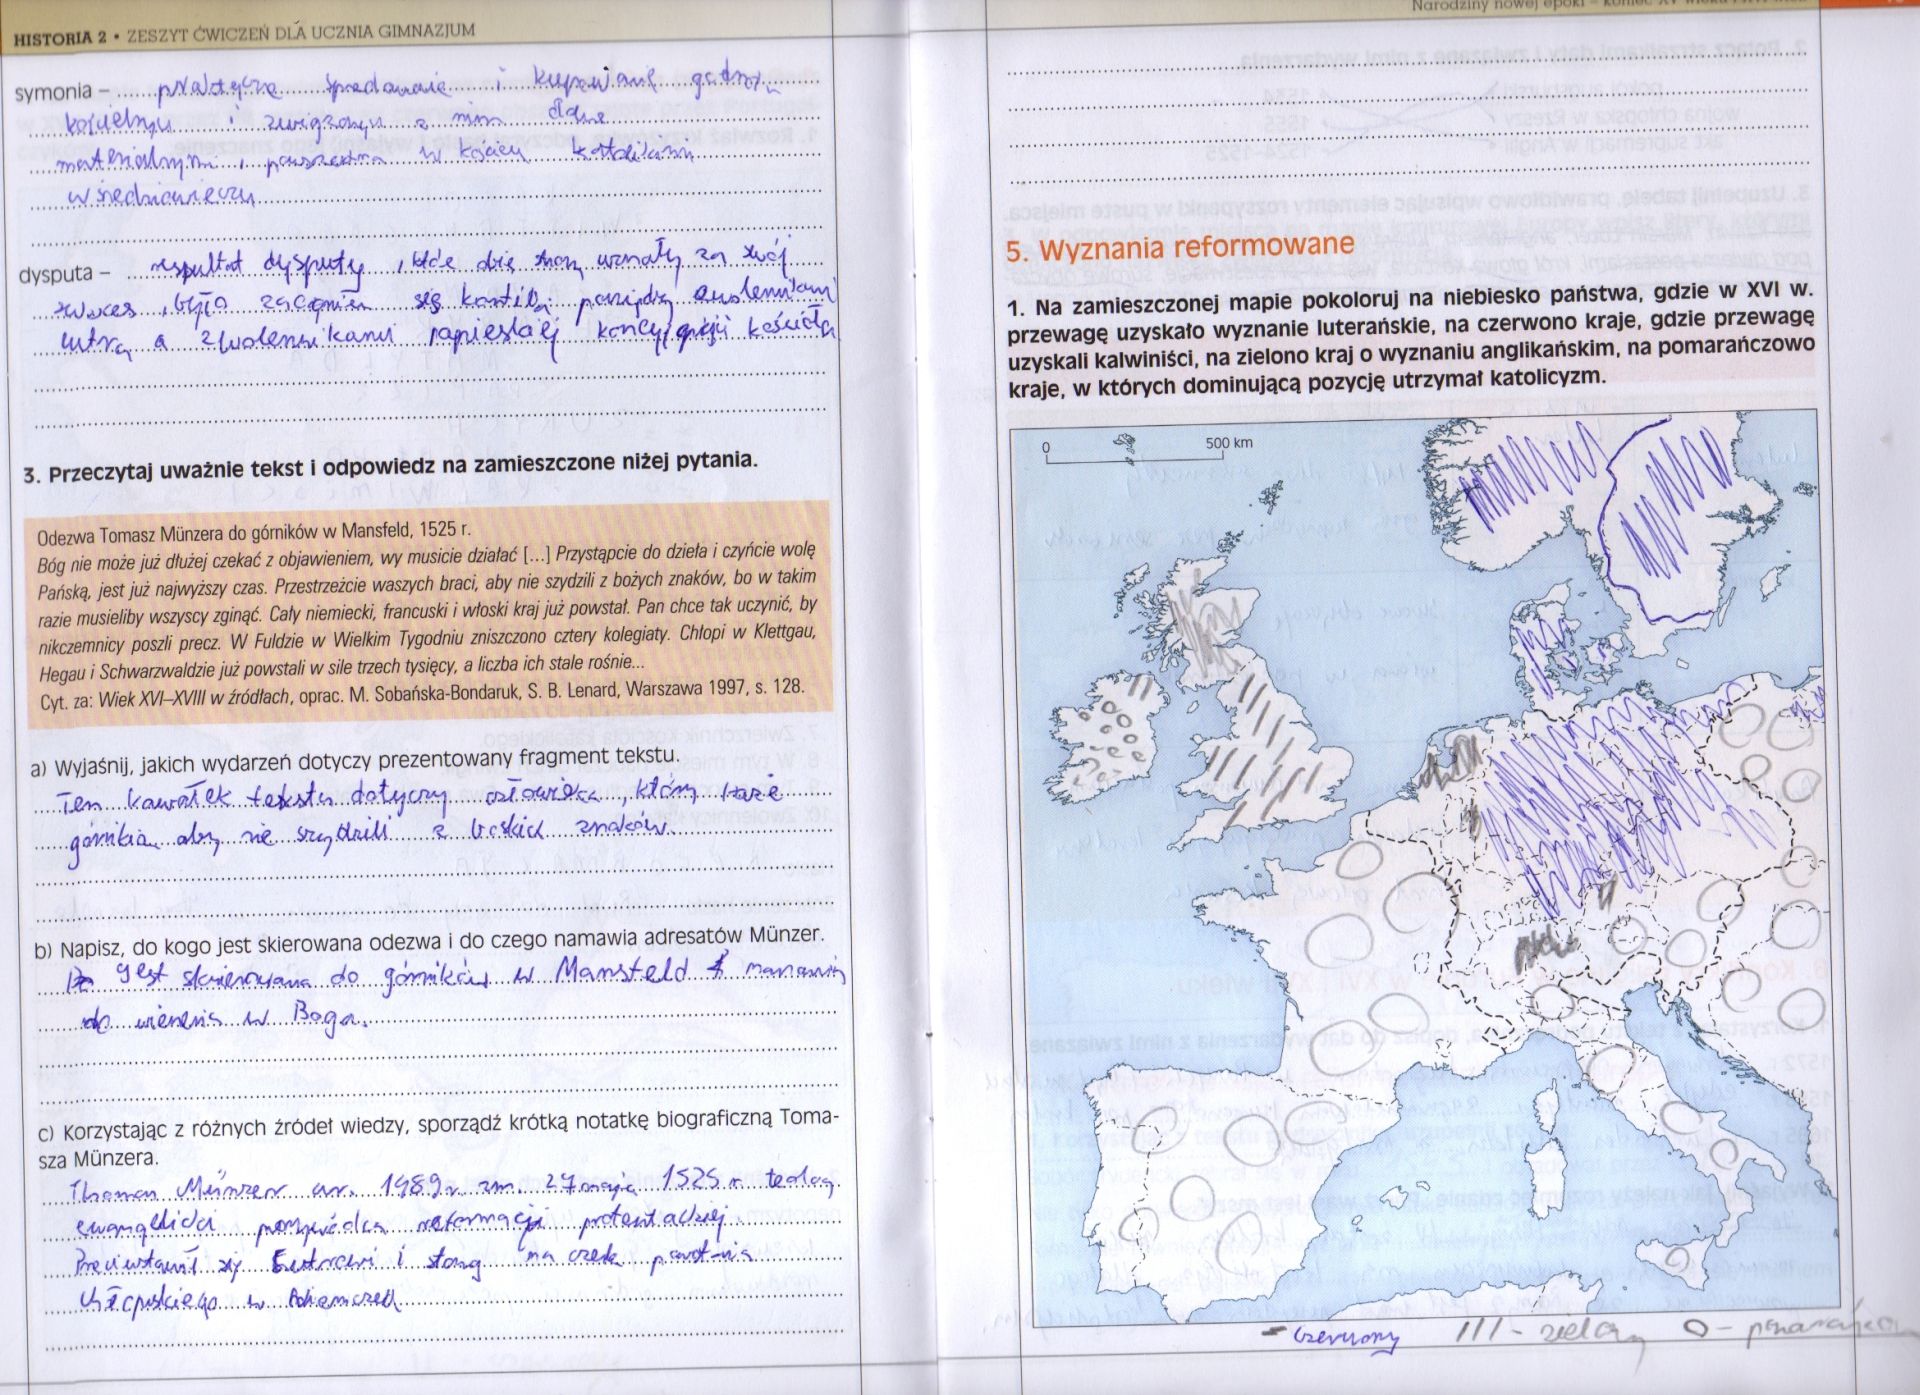 HISTORIA 2 • ZESZYT ĆWICZEŃ DLA UCZNIA GIMNAZJUM
symonia – praktyczne sprzedawanie i kupowanie godny
kościelnych i związanych z nim dane
materialnymi, powszechna w kościen katolickim
w średniowieczu
dysputa – rezultat dysputy, które obie strony uznały za swój
sukces, było zaognienie się konfliktu pomiędzy zwolennikami
Lutra a zwolennikami papieskiej koncepcji kościoła
3. Przeczytaj uważnie tekst i odpowiedz na zamieszczone niżej pytania.
Odezwa Tomasz Münzera do górników w Mansfeld, 1525 r.
Bóg nie może już dłużej czekać z objawieniem, wy musicie działać [...] Przystąpcie do dzieła i czyńcie wolę
Pańską, jest już najwyższy czas. Przestrzeżcie waszych braci, aby nie szydzili z bożych znaków, bo w takim
razie musieliby wszyscy zginąć. Cały niemiecki, francuski i włoski kraj już powstał. Pan chce tak uczynić, by
nikczemnicy poszli precz. W Fuldzie w Wielkim Tygodniu zniszczono cztery kolegiaty. Chłopi w Klettgau,
Hegau i Schwarzwaldzie już powstali w sile trzech tysięcy, a liczba ich stale rośnie...
Cyt. za: Wiek XVI–XVIII w źródłach, oprac. M. Sobańska-Bondaruk, S. B. Lenard, Warszawa 1997, s. 128.
a) Wyjaśnij, jakich wydarzeń dotyczy prezentowany fragment tekstu.
Ten kawałek tekstu dotyczy człowieka, który każe
górnika aby nie szydzili z boskich znaków.
b) Napisz, do kogo jest skierowana odezwa i do czego namawia adresatów Münzer.
Jest skierowana do górników w Mansfeld namawia
do wierzenia w Boga.
c) Korzystając z różnych źródeł wiedzy, sporządź krótką notatkę biograficzną Toma-
sza Münzera.
Thomas Münzer ur. 1489r. zm. 27 maja 1525 r. teolog
ewangelicki przywódca reformacji protestackiej.
Przeciwstawił się Lutrowi i stoną na czele powstania
chłopskiego w Niemczech
Narodziny nowej epoki – koniec XV wieku i XVI wiek
5. Wyznania reformowane
1. Na zamieszczonej mapie pokoloruj na niebiesko państwa, gdzie w XVI w.
przewagę uzyskało wyznanie luterańskie, na czerwono kraje, gdzie przewagę
uzyskali kalwiniści, na zielono kraj o wyznaniu anglikańskim, na pomarańczowo
kraje, w których dominującą pozycję utrzymał katolicyzm.
0 500 km
– czerwony /// – zielony O – pomarańczowy